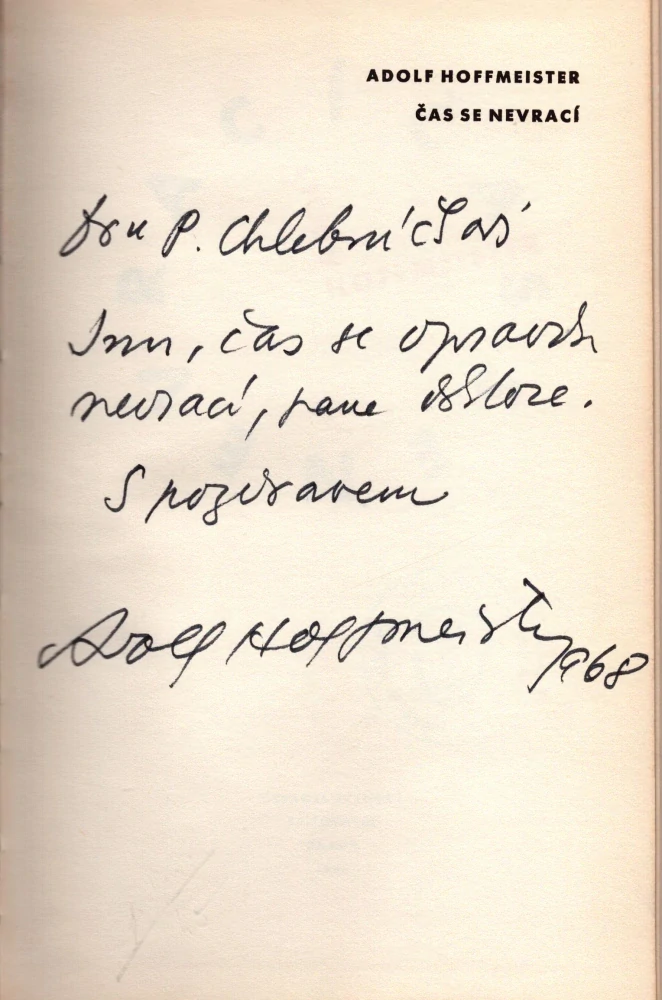 ADOLF HOFFMEISTER
ČAS SE NEVRACÍ
Dru P.
Inu, čas se opravdu
nevrací, pane
S pozdravem
Adolf Hoffmeister
1968